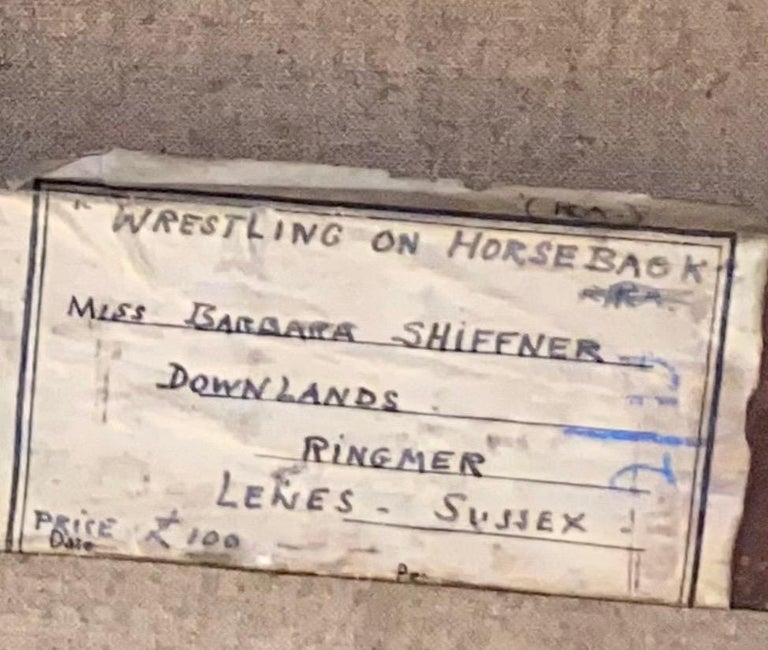 " WRESTLING ON HORSEBACK
MISS BARBARA SHIFFNER
DOWNLANDS
RINGMER
LEWES - SUSSEX
PRICE £100
Date
Per